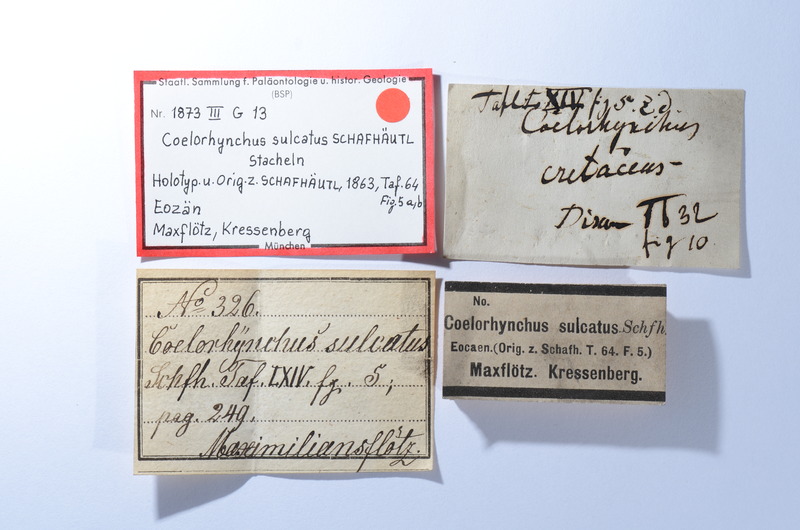 Staatl. Sammlung f. Paläontologie u. histor. Geologie
(BSP)
Nr. 1873 III G 13
Coelorhynchus sulcatus SCHAFHÄUTL
Stacheln
Holotyp. u. Orig. z. SCHAFHÄUTL, 1863, Taf. 64
Fig. 5 a,b
Eozän
Maxflötz, Kressenberg
München
XIV fg 5.
Coelorhynchus
cretaceus
Dixon II 32
fig 10.
No 326.
Coelorhÿnchus sulcatus
Schfh Taf. LXIV. fg. 5,
pag. 249.
Maximiliansflötz.
No.
Coelorhynchus sulcatus Schfh.
Eocaen. (Orig. z. Schafh. T. 64. F. 5.)
Maxflötz. Kressenberg.